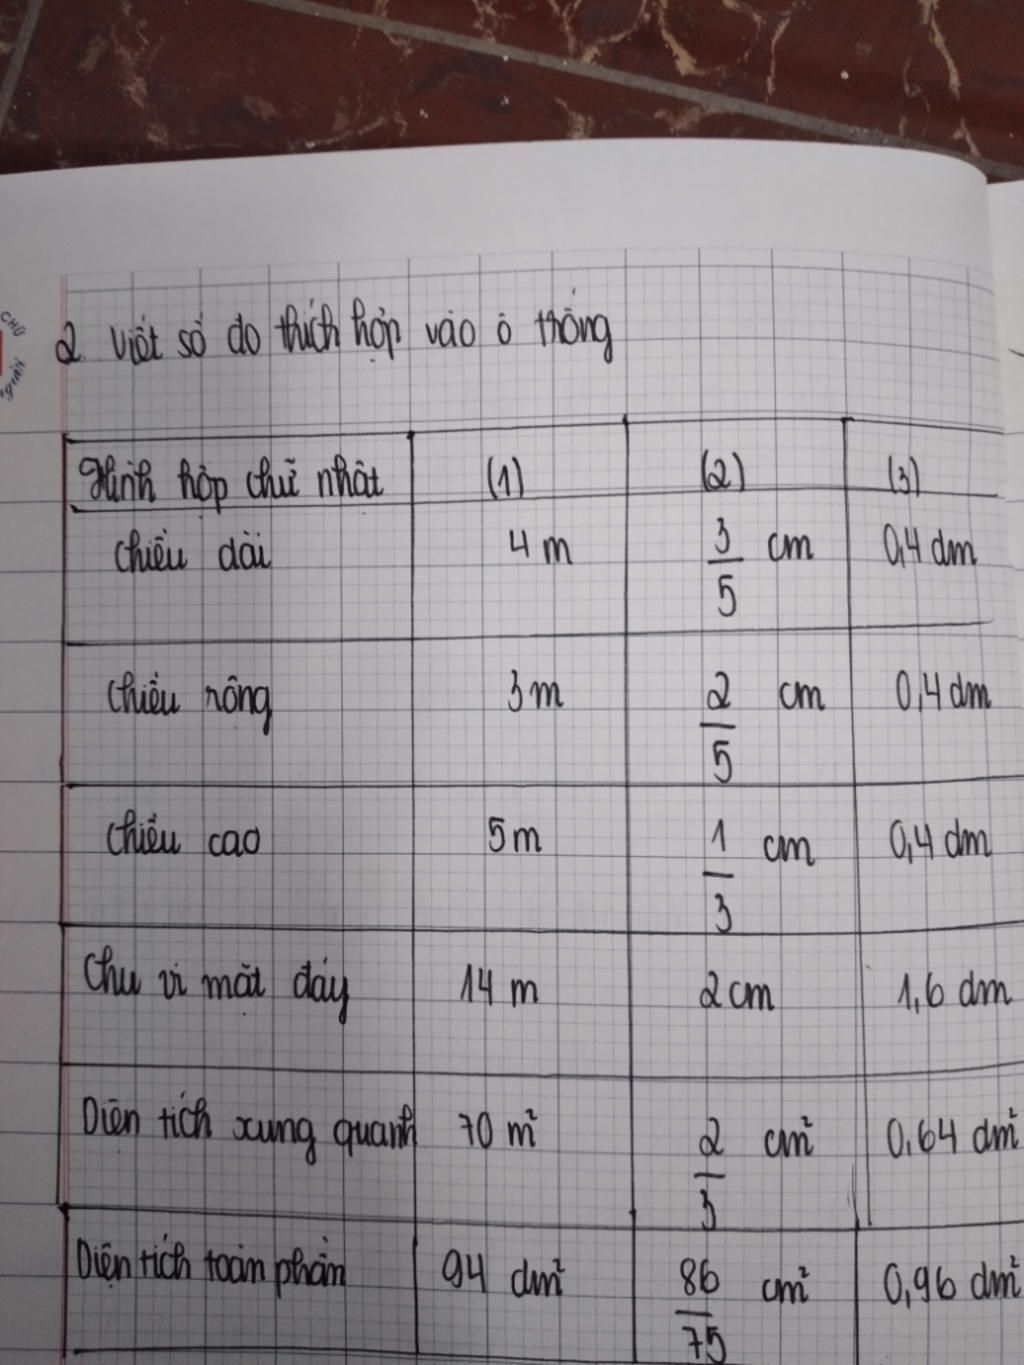 CHỮ
2. Viết số đo thích hợp vào ô trống
Hình hộp chữ nhật (1) (2) (3)
Chiều dài 4 m 3/5 cm 0,4 dm
Chiều rộng 3 m 2/5 cm 0,4 dm
Chiều cao 5 m 1/3 cm 0,4 dm
Chu vi mặt đáy 14 m 2 cm 1,6 dm
Diện tích xung quanh 70 m² 2/3 cm² 0,64 dm²
Diện tích toàn phần 94 dm² 86/75 cm² 0,96 dm²